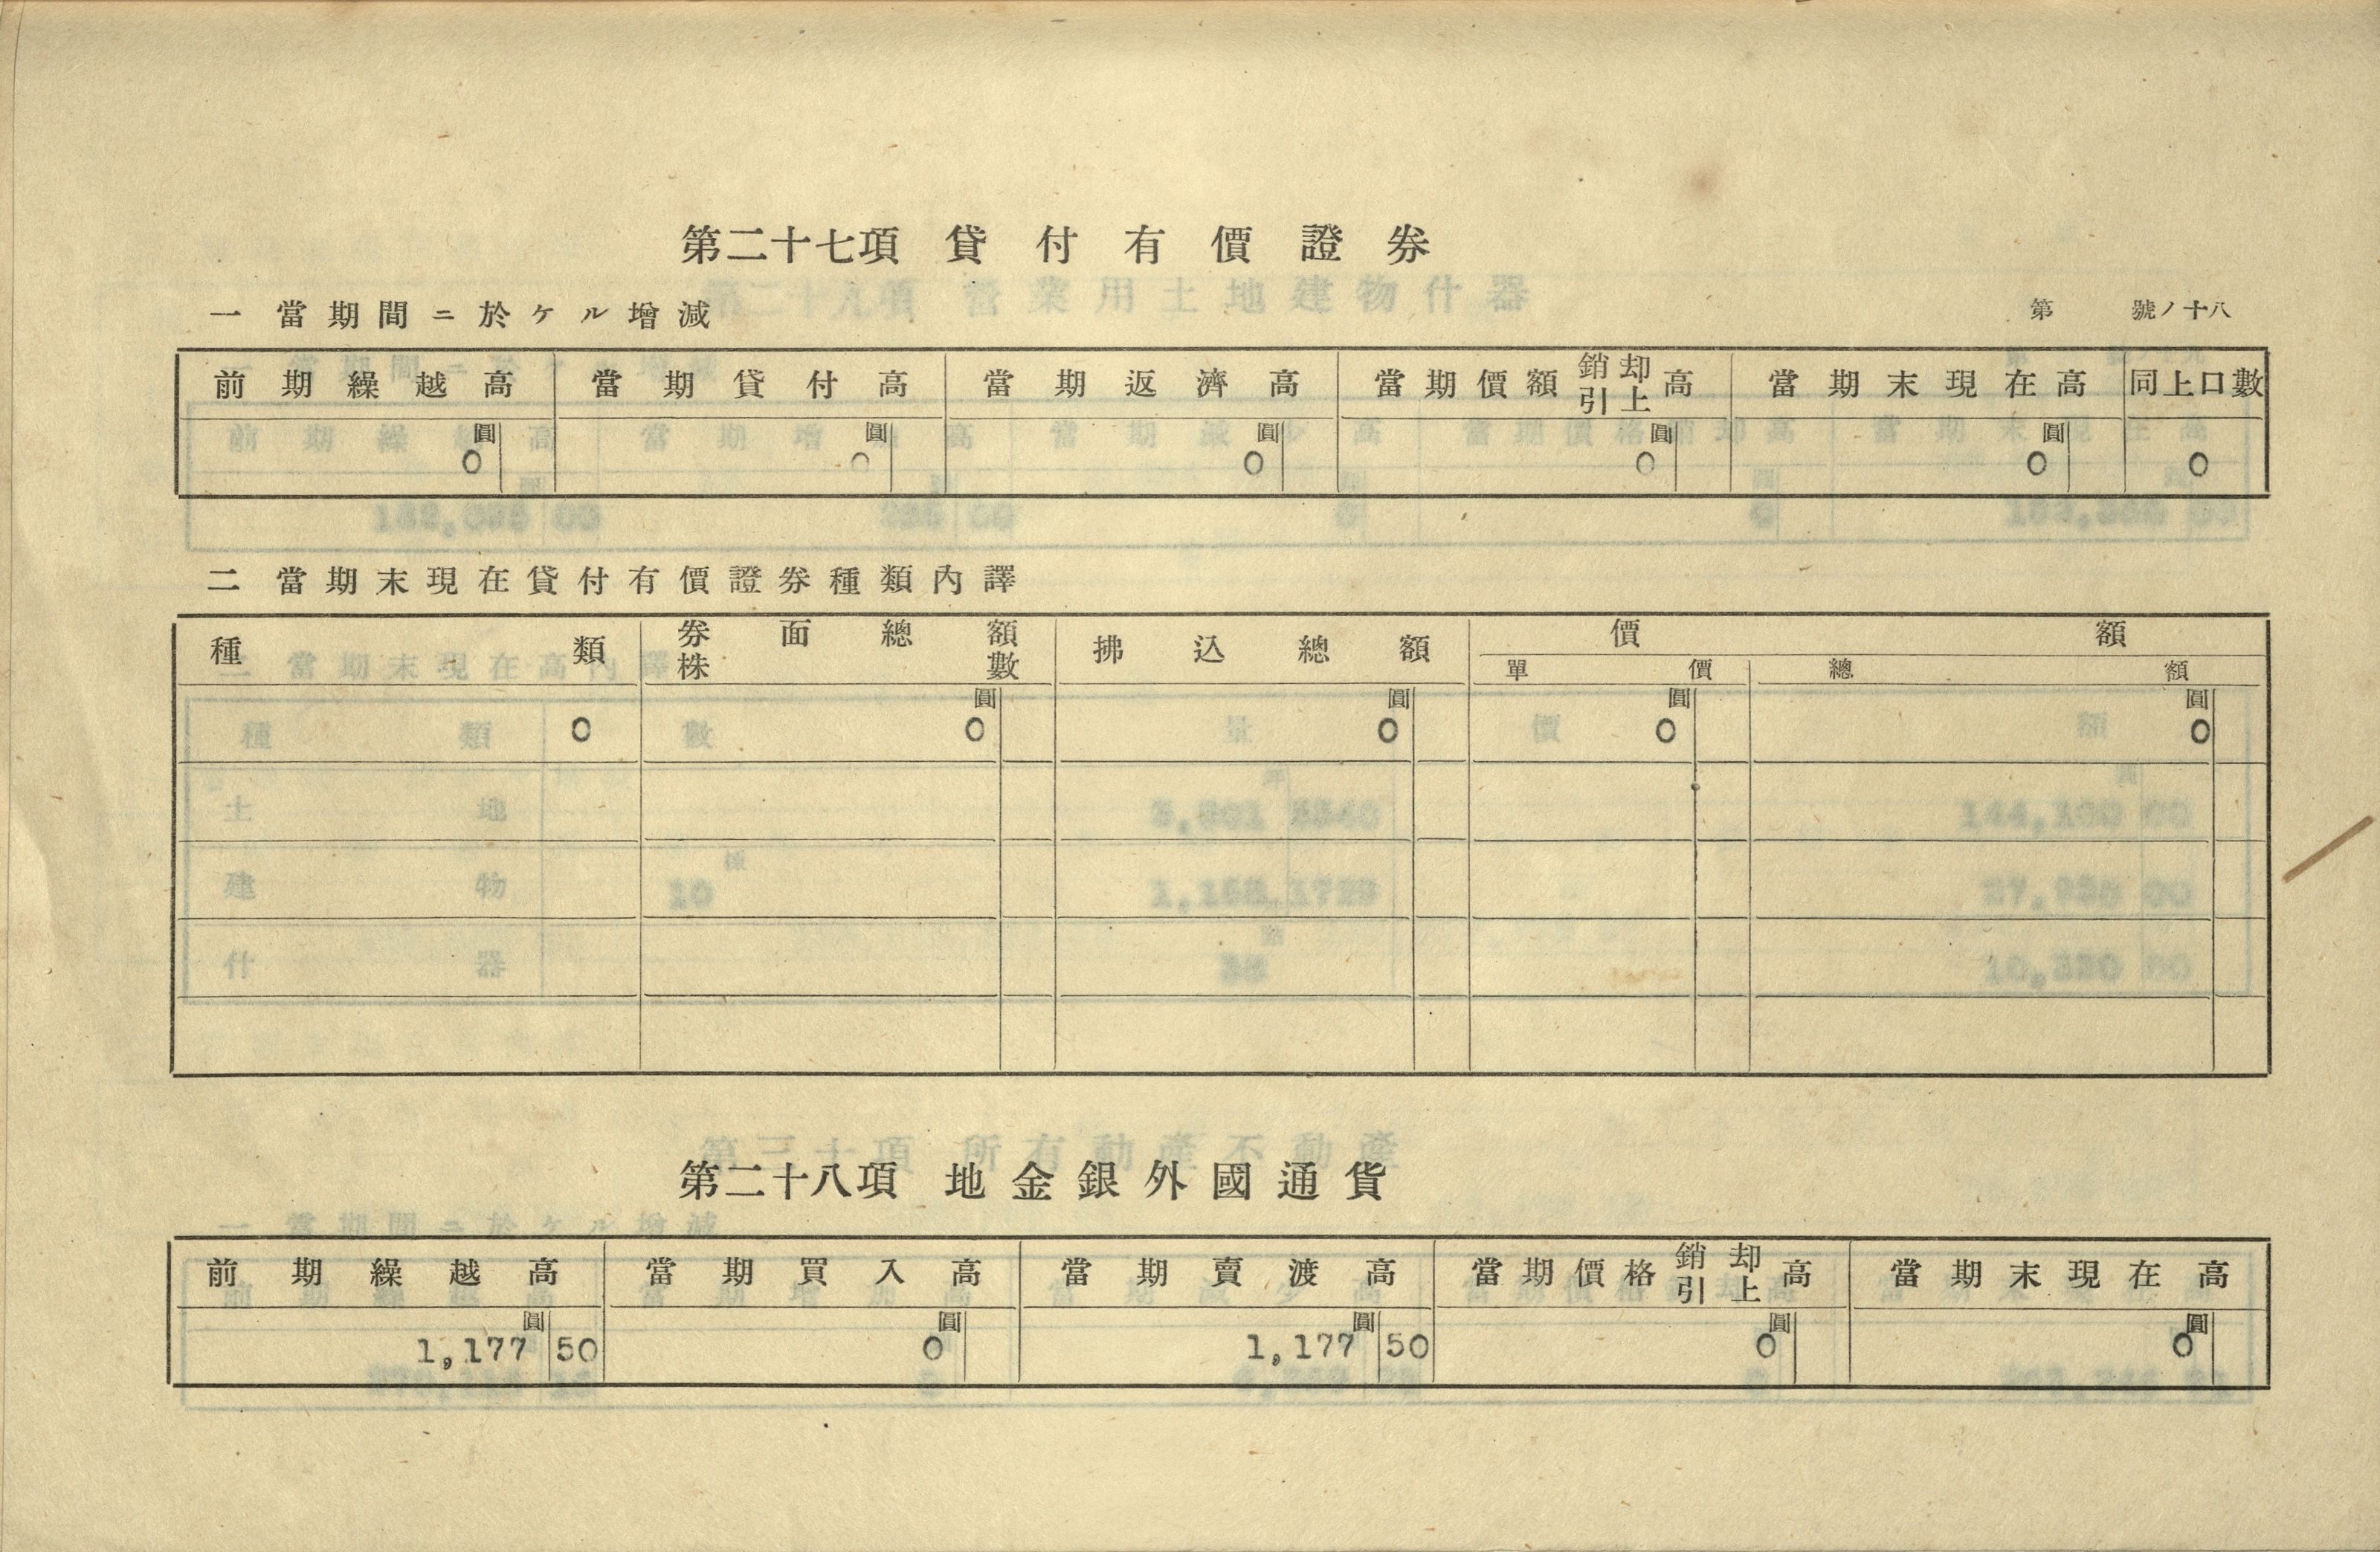 第二十七項 貸付有價證券
一 當期間ニ於ケル增減
第 號ノ十八
前期繰越高 當期貸付高 當期返濟高 當期價額銷却引上高 當期末現在高 同上口數
圓 圓 圓 圓 圓
0 0 0 0 0 0
二 當期末現在貸付有價證券種類內譯
種類 券面總額 拂込總額 價額
株數 單價 總額
圓 圓 圓 圓
0 0 0 0 0
第二十八項 地金銀外國通貨
前期繰越高 當期買入高 當期賣渡高 當期價格銷却引上高 當期末現在高
圓 圓 圓 圓 圓
1,177 50 0 1,177 50 0 0